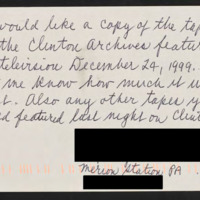 would like a copy of the tap
the Clinton Archives featur
television December 24, 1999.
me know how much it w
t. Also any other tapes y
d featured last night on Clint
Merion Station, PA